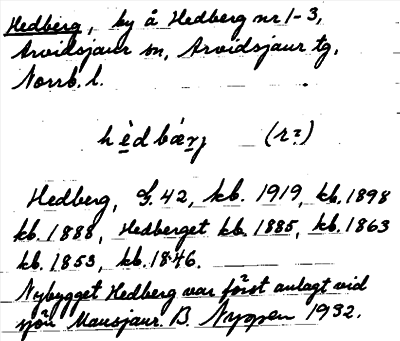 Hedberg, by å Hedberg nr 1-3,
Arvidsjaur sn, Arvidsjaur tg,
Norrb. l.
hèdbærj (r?)
Hedberg, G. 42, kb. 1919, kb. 1898
kb. 1888, Hedberget kb. 1885, kb. 1863
kb. 1853, kb. 1846.
Nybygget Hedberg var först anlagt vid
sjön Mausjaur. B. Nyman 1932.